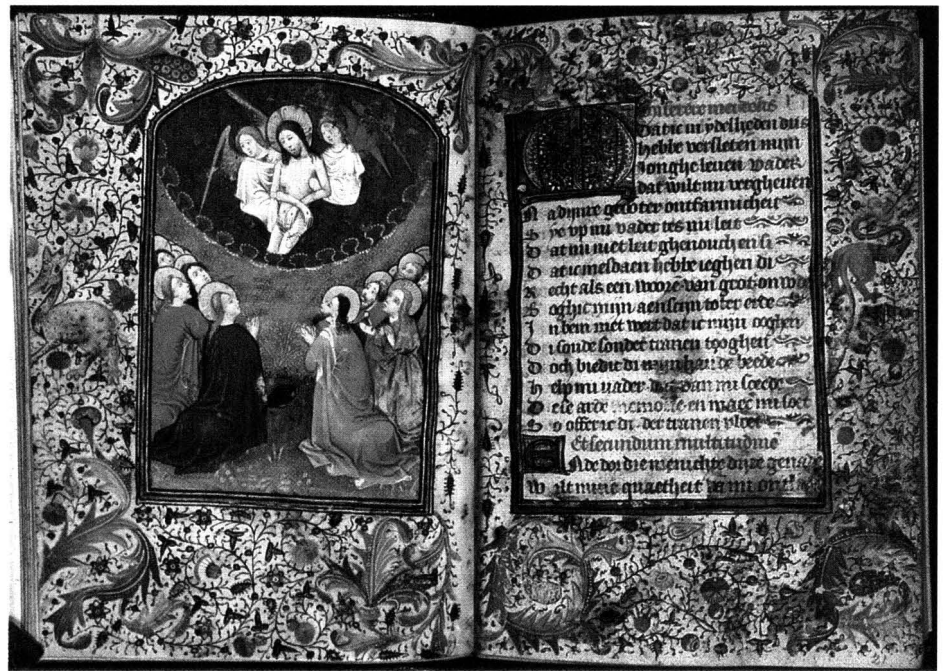 Miserere mei deus
Datic in ydelheden dus
hebbe versleten mijn
Jonghe leven vader
dat wilt mi vergheven
Na dijnre groter ontfarmicheit
Sye up mi vader tes mi leit
Dat mi niet leit ghenouch en si
Datic mesdaen hebbe ieghen di
Recht als een moore van grot
Soghic mijn aenscijn toter erde
In bem niet weit dat ic mijn ooghen
Di sonde sonder tranen tooghen
Doch biedic di mijn hande beede
Help mi vader dat van mi sceede
Dese arde en maect mi soet
So offeric di der tranen vloet
Et secundum multitudine
Ende dor die menichte dijnre genade